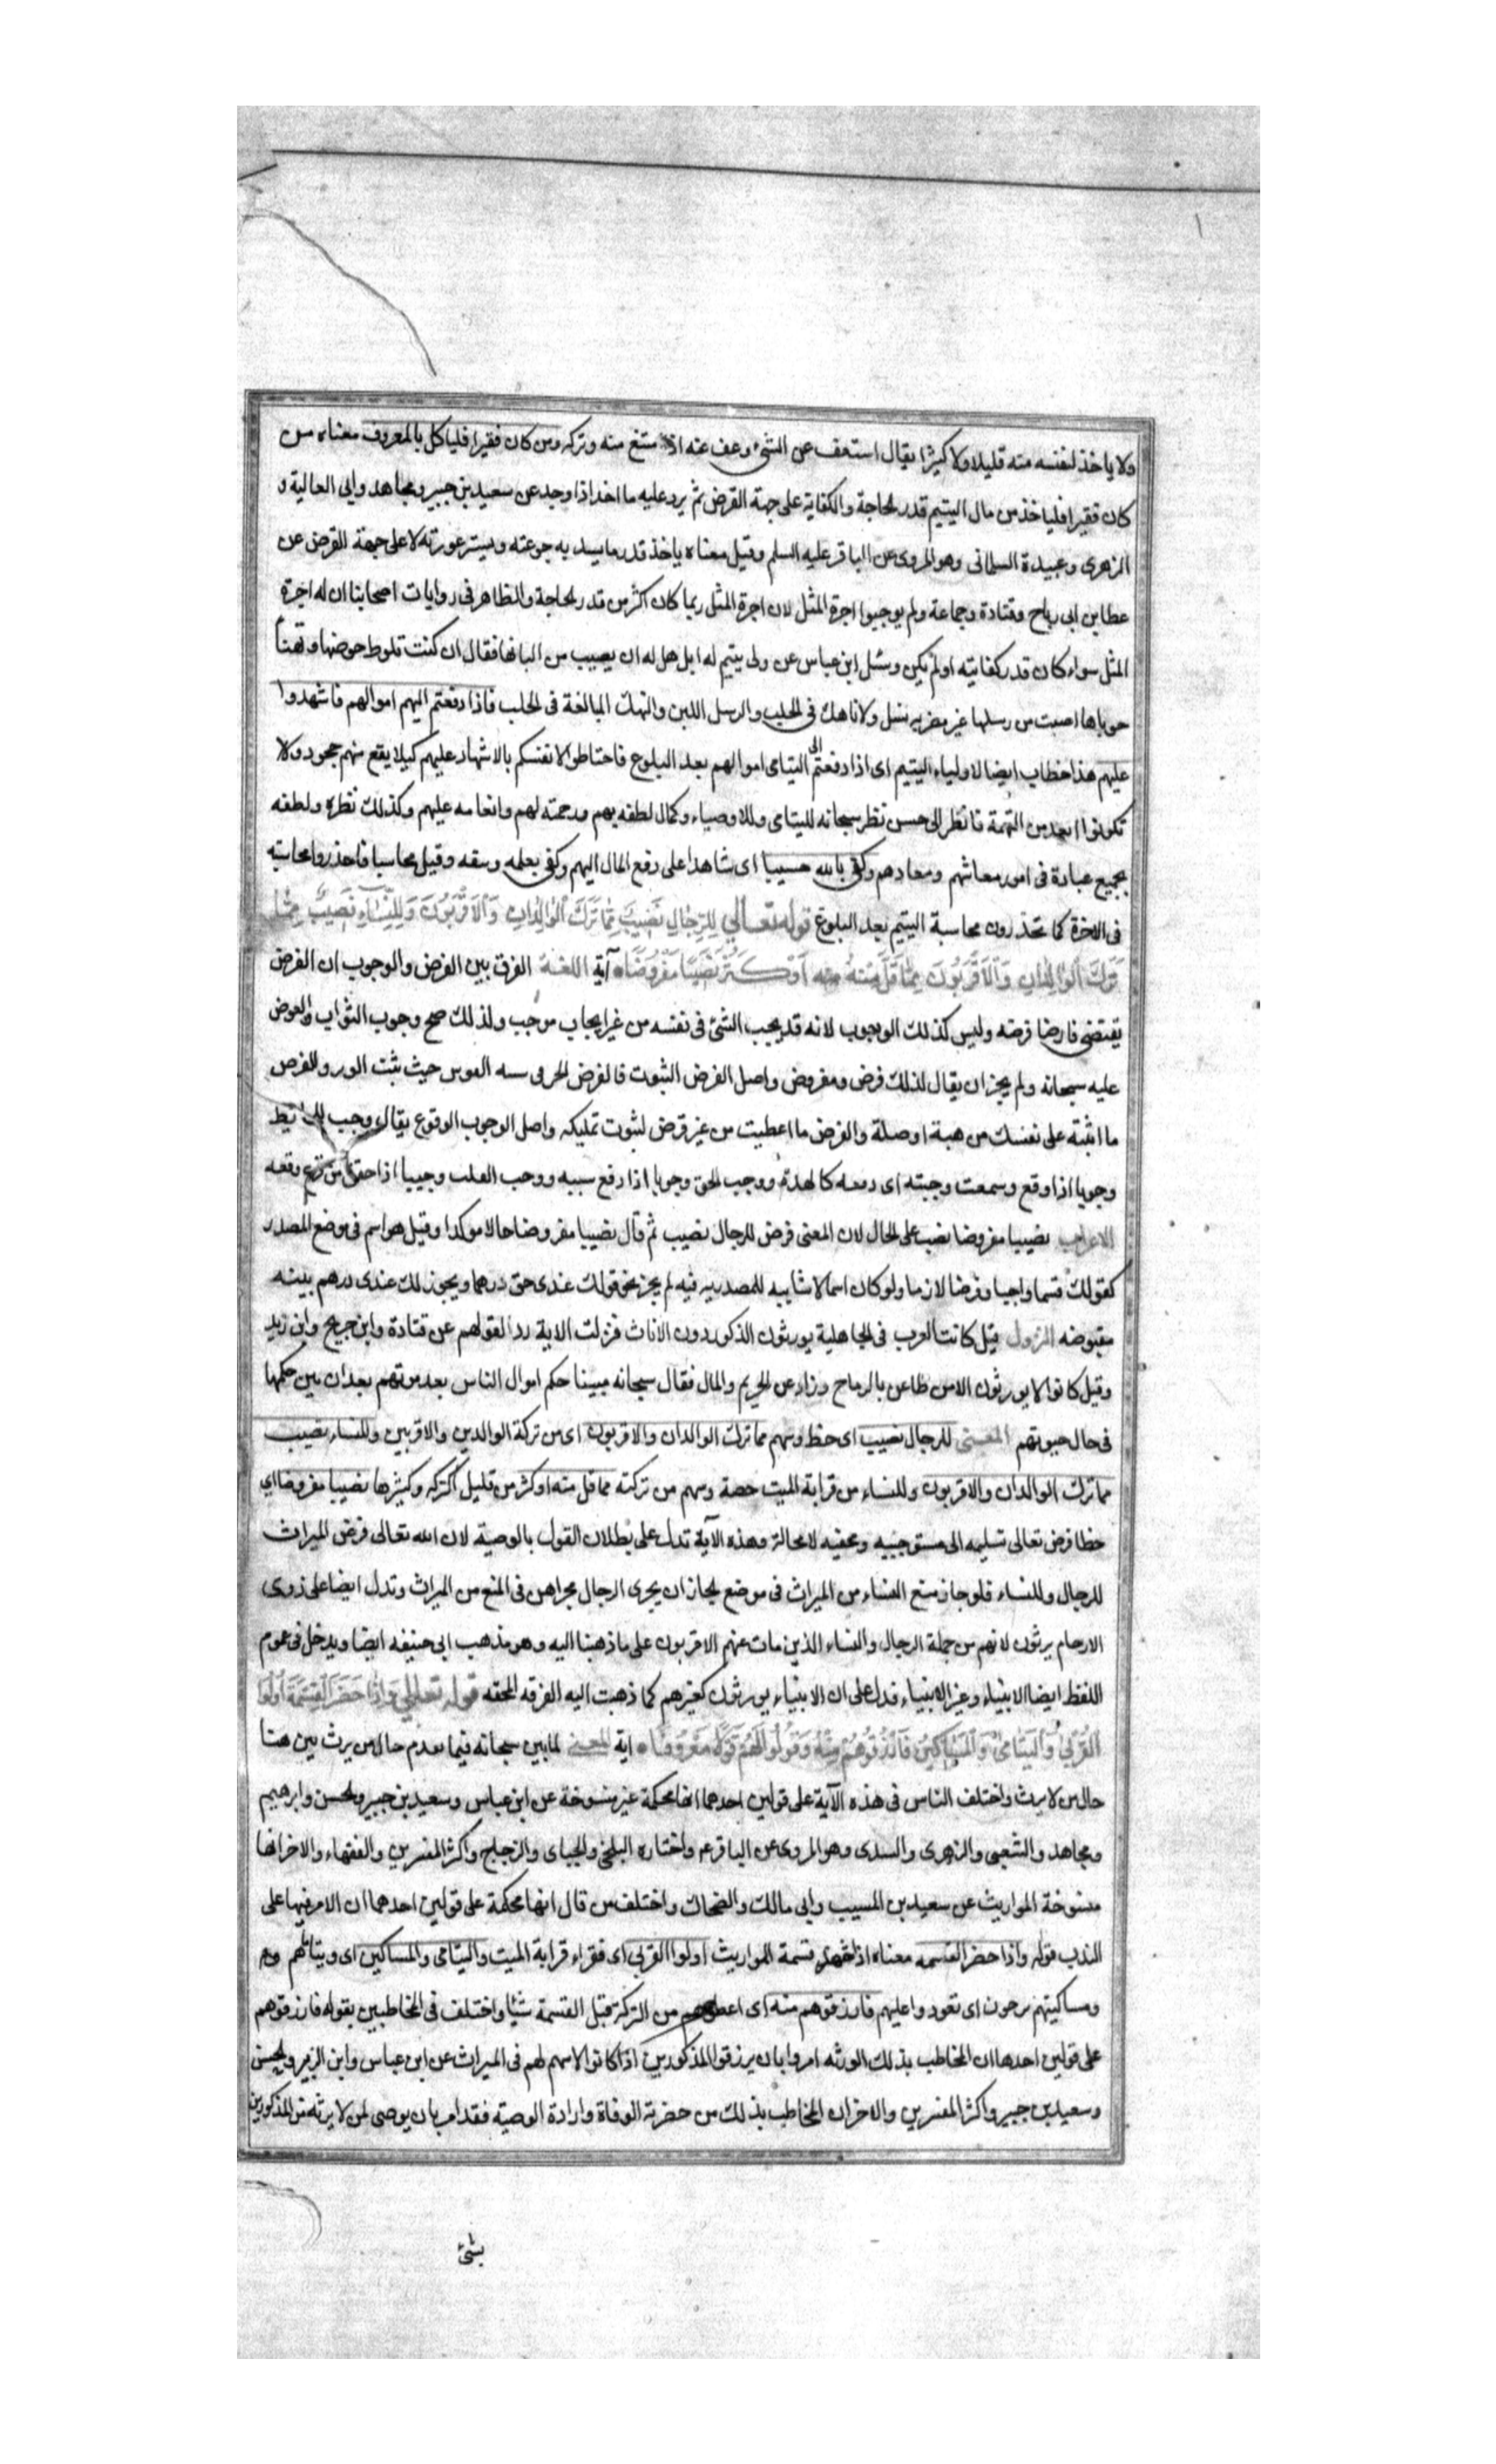 ولا ياخذ لنفسه منه قليلا ولا كثيرا يقال استعف عن الشئ وعف عنه اذا متنع منه وتركه ومن كان فقيرا فلياكل بالمعروف معناه من
كان فقيرا فلياخذ من مال اليتيم قدر لحاجة والكفاية على جهة القرض ثم يرد عليه ما اخذ اذا وجد عن سعيد بن جبير ومجاهد وابي العالية و
الزهرى وعبيدة السلمانى وهو المروى عن الباقر عليه السلم وقيل معناه ياخذ قدر ما يسد به جوعته ويستر عورته لا على جهة القرض عن
عطا بن ابى رباح وقتادة وجماعة ولم يوجبوا اجرة المثل لان اجرة المثل ربما كان اكثر من قدر لحاجة والظاهر فى روايات اصحابنا ان له اجرة
المثل سواء كان قدر كفايته او لم يكن وسئل ابن عباس عن ولى يتيم له ابل هل له ان يصيب من البانها فقال ان كنت تلوط حوضها وتهنأ
جرباها اصبت من رسلها غير مضر بنسل ولا ناهك فى الحلب والرسل اللبن والنهك المبالغة فى الحلب فاذا دفعتم اليهم اموالهم فاشهدوا
عليهم هذا خطاب ايضا لاولياء اليتيم اى اذا دفعتم الى اليتامى اموالهم بعد البلوغ فاحتاطوا لانفسكم بالاشهاد عليهم كيلا يقع منهم جحود ولا
تكونوا ابعد من التهمة فانظر الى حسن نظر سبحانه لليتامى وللاوصياء وكمال لطفه بهم ورحمته لهم وانعامه عليهم وكذلك نظره ولطفه
بجميع عباده فى امور معاشهم ومعادهم وكفى بالله حسيبا اى شاهدا على دفع المال اليهم وكفى بعلمه وسقه وقيل محاسبا فاحذروا محاسبته
فى الاخرة كما تحذرون محاسبة اليتيم بعد البلوغ قوله تعالى لِلرِّجالِ نَصيبٌ مِمّا تَرَكَ الْوالِدانِ وَالْاَقْرَبُونَ وَلِلنِّساءِ نَصيبٌ مِمّا
تَرَكَ الْوالِدانِ وَالْاَقْرَبُونَ مِمّا قَلَّ مِنْهُ اَوْ كَثُرَ نَصيبًا مَفْرُوضًا آية اللغة الفرق بين الفرض والوجوب ان الفرض
يقتضى فارضا فرضه وليس كذلك الوجوب لانه قد يجب الشئ فى نفسه من غير ايجاب موجب ولذلك صح وجوب الثواب والعوض
عليه سبحانه ولم يجز ان يقال لذلك فرض ومفروض واصل الفرض الثبوت فالفرض الحز فى سيه القوس حيث يثبت الوتر والفرض
ما اثبته على نفسك من هبة او صلة والفرض ما اعطيت من غير قرض لثبوت تمليكه واصل الوجوب الوقوع يقال وجب الحائط
وجوبا اذا وقع وسمعت وجبته اى وقعه كالهدة ووجب الحق وجوبا اذا وقع سببه ووجب القلب وجيبا اذا خفق من فزع وقعه
الاعراب نصيبا مفروضا نصب على الحال لان المعنى فرض للرجال نصيب ثم قال نصيبا مفروضا حالا موكدا وقيل هو اسم فى موضع المصدر
كقولك قسما واجبا وفرضا لازما ولو كان اسما لا شايبه للمصدريه فيه لم يجز نحو قولك عندى حق درهما ويجوز لك عندى درهم هبة
مقبوضه النزول قيل كانت العرب فى الجاهلية يورثون الذكور دون الاناث فنزلت الاية ردا لقولهم عن قتادة وابن جريج وابن زيد
وقيل كانوا لا يورثون الا من طاعن بالرماح وزاد عن الحريم والمال فقال سبحانه مبينا حكم اموال الناس بعد موتهم بعد ان بين حكمها
فى حال حيوتهم المعنى للرجال نصيب اى حظ وسهم مما ترك الوالدان والاقربون اى من تركة الوالدين والاقربين وللنساء نصيب
مما ترك الوالدان والاقربون وللنساء من قرابة الميت حصة وسهم من تركته مما قل منه او كثر من قليل التركه وكثيرها نصيبا مفروضا اى
حظا فرض تعالى تسليمه الى مستوجبيه ومحقيه لا محالة وهذه الآية تدل على بطلان القول بالوصية لان الله تعالى فرض الميراث
للرجال وللنساء فلو جاز منع النساء من الميراث فى موضع لجاز ان يجرى الرجال مجراهن فى المنع من الميراث وتدل ايضا على ذوى
الارحام يرثون لانهم من جملة الرجال والنساء الذين مات عنهم الاقربون على ما ذهبنا اليه وهو مذهب ابى حنيفه ايضا ويدخل فى عموم
اللفظ ايضا الانبياء وغير الانبياء فدل على ان الانبياء يورثون كغيرهم كما ذهبت اليه الفرقه المحقه قوله تعالى وَاِذا حَضَرَ الْقِسْمَةَ اُولُوا
الْقُرْبى وَالْيَتامى وَالْمَساكينُ فَارْزُقُوهُمْ مِنْهُ وَقُولُوا لَهُمْ قَوْلًا مَعْرُوفًا اية المعنى لما بين سبحانه فيما تقدم حال من يرث بين هنا
حال من لا يرث واختلف الناس فى هذه الآية على قولين احدهما انها محكمة غير منسوخة عن ابن عباس وسعيد بن جبير ولحسن وابرهيم
ومجاهد والشعبى والزهرى والسدى وهو المروى عن الباقر ع واختاره البلخى والجبائى والزجاج واكثر المفسرين والفقهاء والاخر انها
منسوخة المواريث عن سعيد بن المسيب وابى مالك والضحاك واختلف من قال انها محكمة على قولين احدهما ان الامر فيها على
الندب قوله واذا حضر القسمه معناه اذا شهد قسمة المواريث اولوا القربى اى فقراء قرابة الميت واليتامى والمساكين اى ويتاماهم
ومساكينهم يرجون اى تعودوا عليهم فارزقوهم منه اى اعطوهم من التركة قبل القسمة شيئا واختلف فى المخاطبين بقوله فارزقوهم
على قولين احدها ان المخاطب بذلك الورثه امروا بان يرزقوا المذكورين اذا كانوا لا سهم لهم فى الميراث عن ابن عباس وابن الزبير ولحسن
وسعيد بن جبير واكثر المفسرين والاخر ان المخاطب بذلك من حضرته الوفاة واراد الوصية فقد امر بان يوصى لمن لا يرثه من المذكورين
بشئ